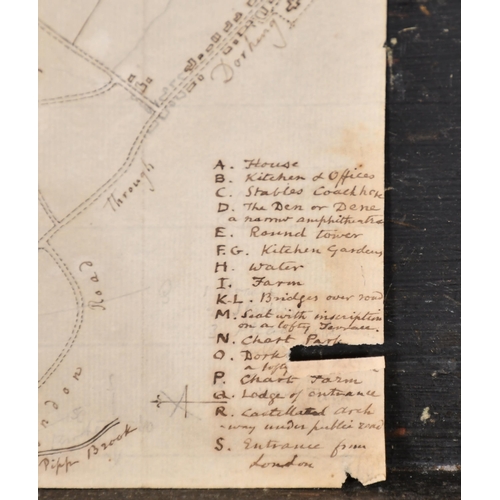 Dorking
through
Road
London
Pipp Brook
A. House
B. Kitchen & Offices
C. Stables Coachhse
D. The Den or Dene
a narrow amphitheatre
E. Round tower
F.G. Kitchen Gardens
H. Water
I. Farm
K-L. Bridges over road
M. Seat with inscription
on a lofty Terrace.
N. Chart Park
O. Dork
a lofty
P. Chart Farm
Q. Lodge of entrance
R. Castellated arch
-way under public road
S. Entrance from
London